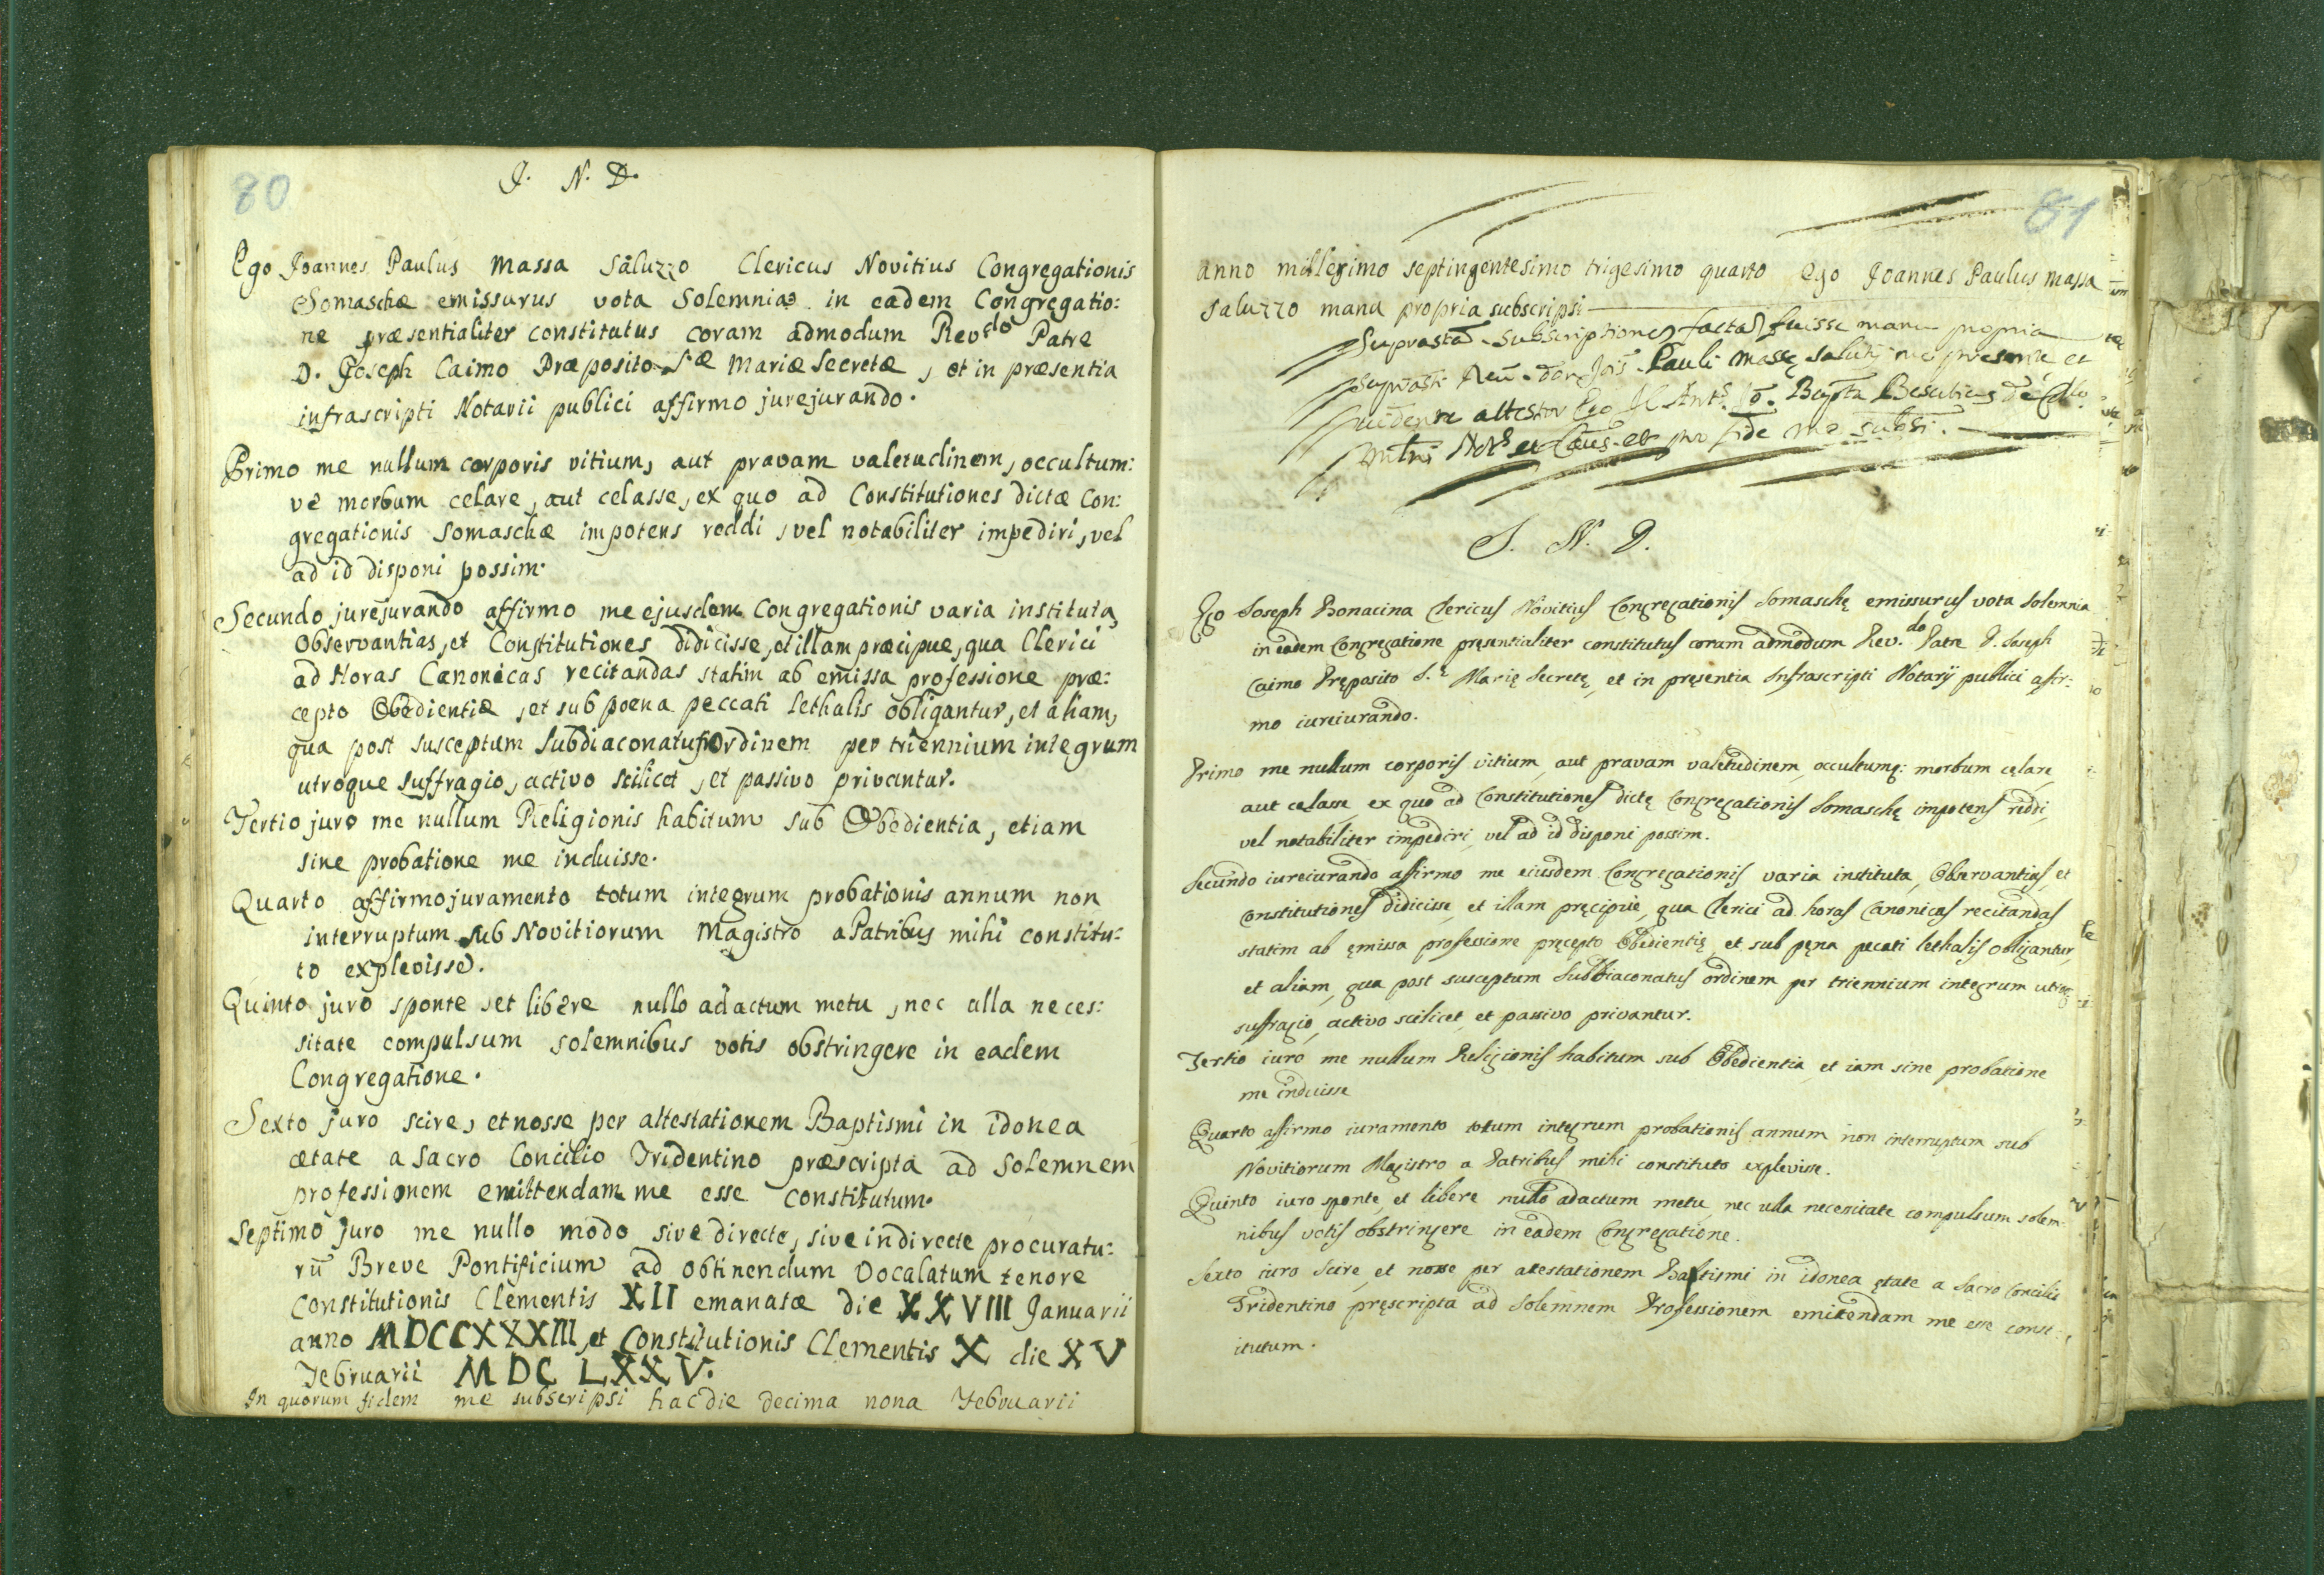 80
J. N. D.
Ego Joannes Paulus Massa Saluzzo Clericus Novitius Congregationis
Somaschæ emissurus vota Solemnia in eadem Congregatio:
ne præsentialiter constitutus coram admodum Rev.do Patre
D. Joseph Caimo Præposito S.æ Mariæ Secretæ, et in præsentia
infrascripti Notarii publici affirmo jurejurando.
Primo me nullum corporis vitium, aut pravam valetudinem, occultum:
ve morbum celare, aut celasse, ex quo ad Constitutiones dictæ Con:
gregationis Somaschæ impotens reddi, vel notabiliter impediri, vel
ad id disponi possim.
Secundo jurejurando affirmo me ejusdem Congregationis varia instituta,
Observantias, et Constitutiones didicisse, et illam præcipue, qua Clerici
ad Horas Canonicas recitandas statim ab emissa professione præ:
cepto Obedientiæ, et sub poena peccati lethalis obligantur, et aliam,
qua post susceptum Subdiaconatus Ordinem per triennium integrum
utroque suffragio, activo scilicet, et passivo privantur.
Tertio juro me nullum Religionis habitum sub Obedientia, etiam
sine probatione me induisse.
Quarto affirmo juramento totum integrum probationis annum non
interruptum sub Novitiorum Magistro a Patribus mihi constitu:
to explevisse.
Quinto juro sponte, et libere nullo adactum metu, nec ulla neces:
sitate compulsum solemnibus votis obstringere in eadem
Congregatione.
Sexto juro scire, et nosse per attestationem Baptismi in idonea
ætate a Sacro Concilio Tridentino præscripta ad Solemnem
professionem emittendam me esse constitutum.
Septimo juro me nullo modo sive directe, sive indirecte procuratu:
rū Breve Pontificium ad obtinendum Vocalatum tenore
Constitutionis Clementis XII emanatæ die XXVIII Januarii
anno MDCCXXXIII, et Constitutionis Clementis X die XV
Februarii MDCLXXV.
In quorum fidem me subscripsi hac die decima nona Februarii
81
anno millesimo septingentesimo trigesimo quarto Ego Joannes Paulus Massa
Saluzzo manu propria subscripsi
Subscriptiones factas fuisse manu propria
Pauli Massę
attestor Ego
Not.s et Caus. et pro fide me subsc̄.
J. N. D.
Ego Joseph Bonacina Clericus Novitius Congregationis Somaschę emissurus vota solemnia
in eadem Congregatione pręsentialiter constitutus coram admodum Rev.do Patre D. Joseph
Caimo Pręposito S.ę Marię Secretę, et in pręsentia Infrascripti Notarij publici affir:
mo iureiurando.
Primo me nullum corporis vitium, aut pravam valetudinem, occultumq: morbum cęlare,
aut celasse, ex quo ad Constitutiones dictę Congregationis Somaschę impotens reddi,
vel notabiliter impediri, vel ad id disponi possim.
Secundo iureiurando affirmo me eiusdem Congregationis varia instituta, Observantias, et
Constitutiones didicisse, et illam pręcipue, qua Clerici ad horas Canonicas recitandas
statim ab ęmissa professione pręcepto Obedientię, et sub pęna pecati lethalis obligantur,
et aliam, qua post susceptum Subdiaconatus ordinem per triennium integrum utroq
suffragio, activo scilicet, et passivo privantur.
Tertio iuro me nullum Religionis habitum sub Obedientia, et iam sine probatione
me induisse
Quarto affirmo iuramento totum integrum probationis annum non interruptum sub
Novitiorum Magistro a Patribus mihi constituto explevisse.
Quinto iuro sponte, et libere nullo adactum metu, nec ulla necessitate compulsum solem-
nibus votis obstringere in eadem Congregatione.
Sexto iuro scire, et nosse per atestationem Baptismi in idonea ętate a Sacro Concilio
Tridentino pręscripta ad solemnem Professionem emitendam me esse const:
itutum.